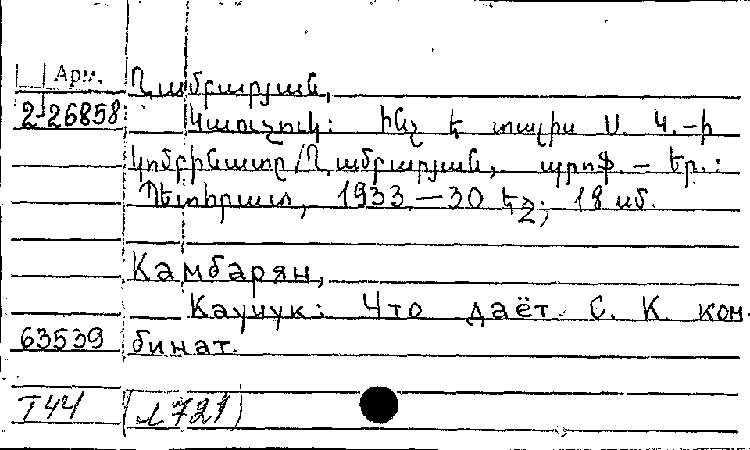 Арм. Ղամբարյան,
2-26858 Կաուչուկ: Ինչ է տալիս Ս. Կ.-ի
կոմբինատը/Ղամբարյան, պրոֆ. – Եր.:
Պետհրատ, 1933. – 30 էջ; 18 սմ.
Камбарян,
Каучук: Что даёт С. К. ком-
63539 бинат.
T44 (1721)